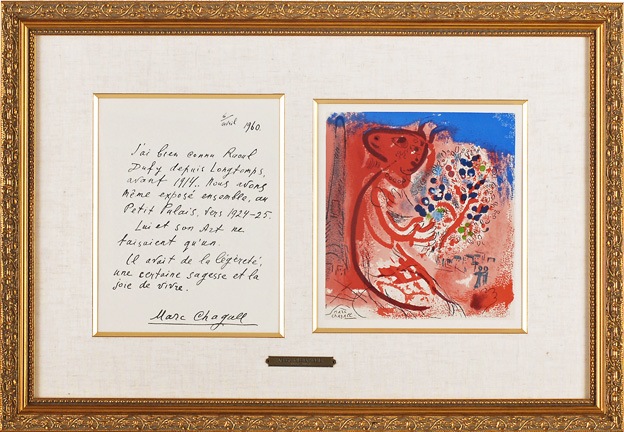 5/avril 1960.
J'ai bien connu Raoul
Dufy depuis Longtomps,
avant 1914.. Nous avons
même exposé ensemble, au
Petit Palais, vers 1924-25.
Lui et son Art ne
faisaient qu'un.
Il avait de la légèreté,
une certaine sagesse et la
joie de vivre.
Marc Chagall
MARC
CHAGALL